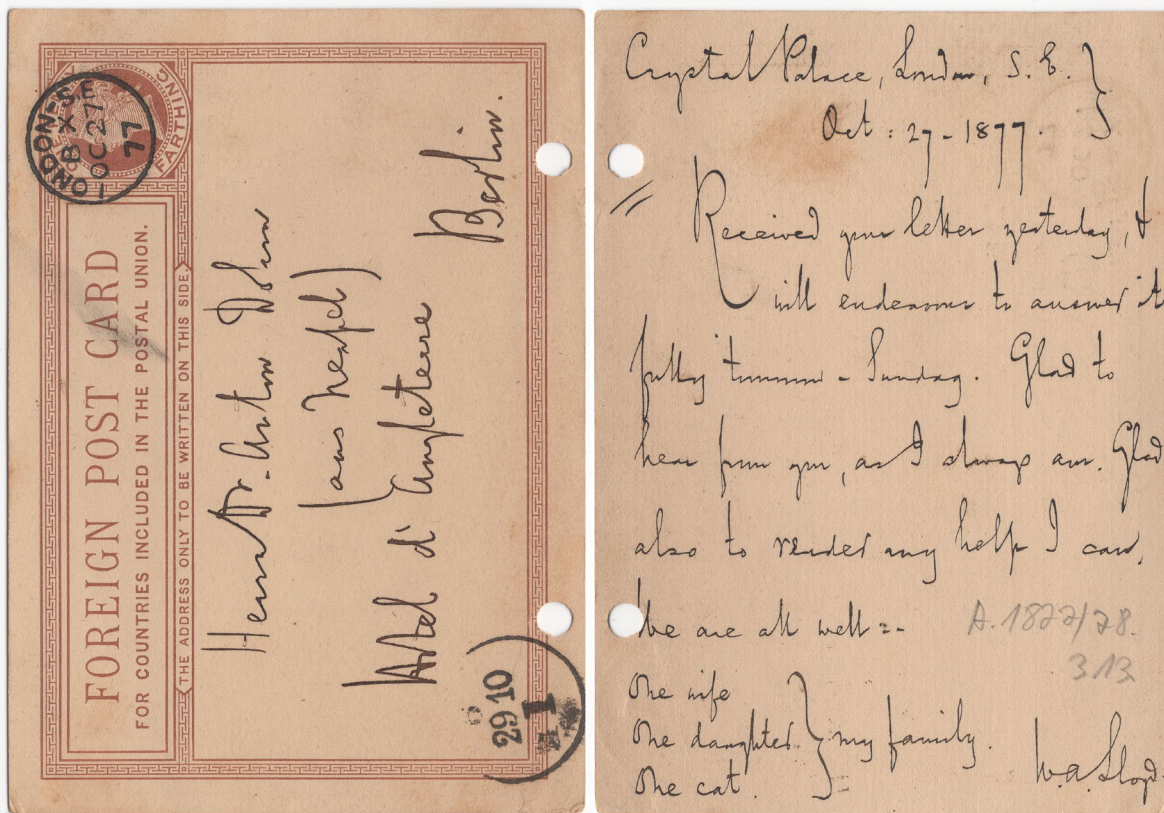 FOREIGN POST CARD
FOR COUNTRIES INCLUDED IN THE POSTAL UNION.
(THE ADDRESS ONLY TO BE WRITTEN ON THIS SIDE.)
FARTHING
LONDON-S.E
8 X
OC 27
77
Herrn Dr. Anton Dohrn
(aus Neapel)
Hotel d'Angleterre
Berlin.
29 10
I
Crystal Palace, London, S.E.
Oct: 27-1877.
Received your letter yesterday, &
will endeavour to answer it
fully tomorrow - Sunday. Glad to
hear from you, as I always am. Glad
also to render any help I can.
We are all well:-
One wife
One daughter } my family.
One cat.
W.A. Lloyd
A. 1877/78.
313